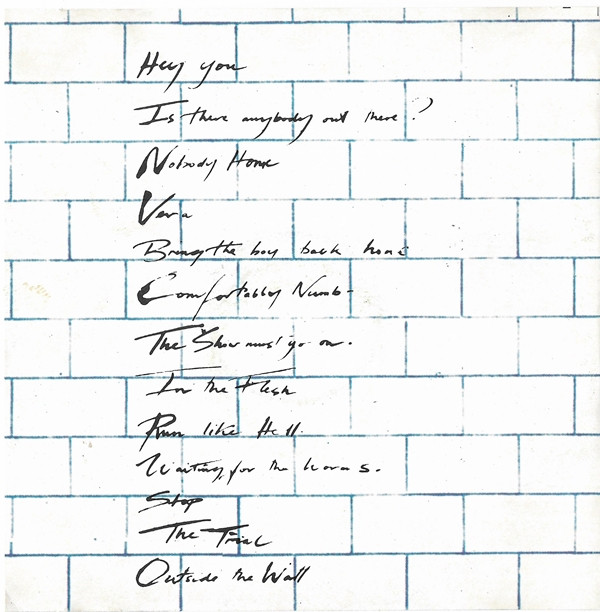 Hey you
Is there anybody out there ?
Nobody Home
Vera
Bring the boy back home
Comfortably Numb -
The Show must go on.
In the Flesh
Run like Hell.
Waiting for the worms.
Stop
The Trial
Outside the Wall